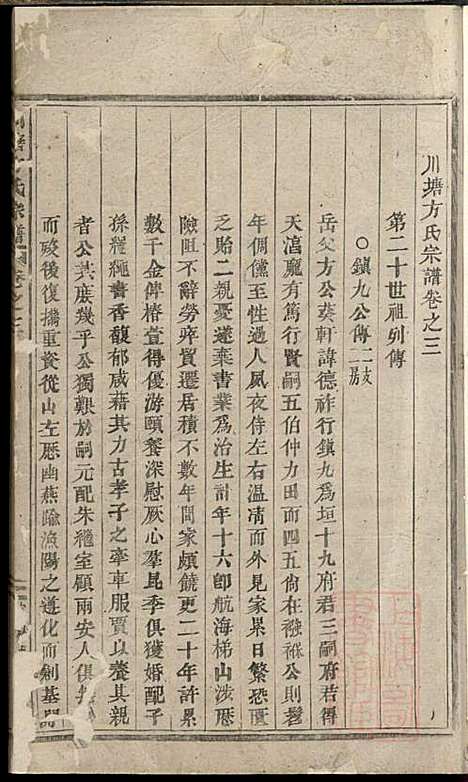 川塘方氏宗譜卷之三
第二十世祖列傳
○鎮九公傳二支二房
岳父方公葵軒諱德祚行鎮九爲垣十九府君三嗣府君得
天湻龎有篤行賢嗣五伯仲力田而四五尙在襁褓公則髫
年倜儻至性過人夙夜侍左右温凊而外見家累日繁恐匱
乏貽二親憂遂棄書業爲治生計年十六卽航海梯山涉歷
險阻不辭勞瘁貿遷居積不數年間家頗饒更二十年許累
數千金俾椿萱得優游頤養深慰厥心羣昆季俱獲婚配子
孫繩繩書香馥郁咸藉其力古孝子之牽車服賈以養其親
者公其庶幾乎公獨艱於嗣元配朱繼室顧兩安人俱
而歿後復攜重資從山左歷幽燕踰漁陽之遵化而剏基